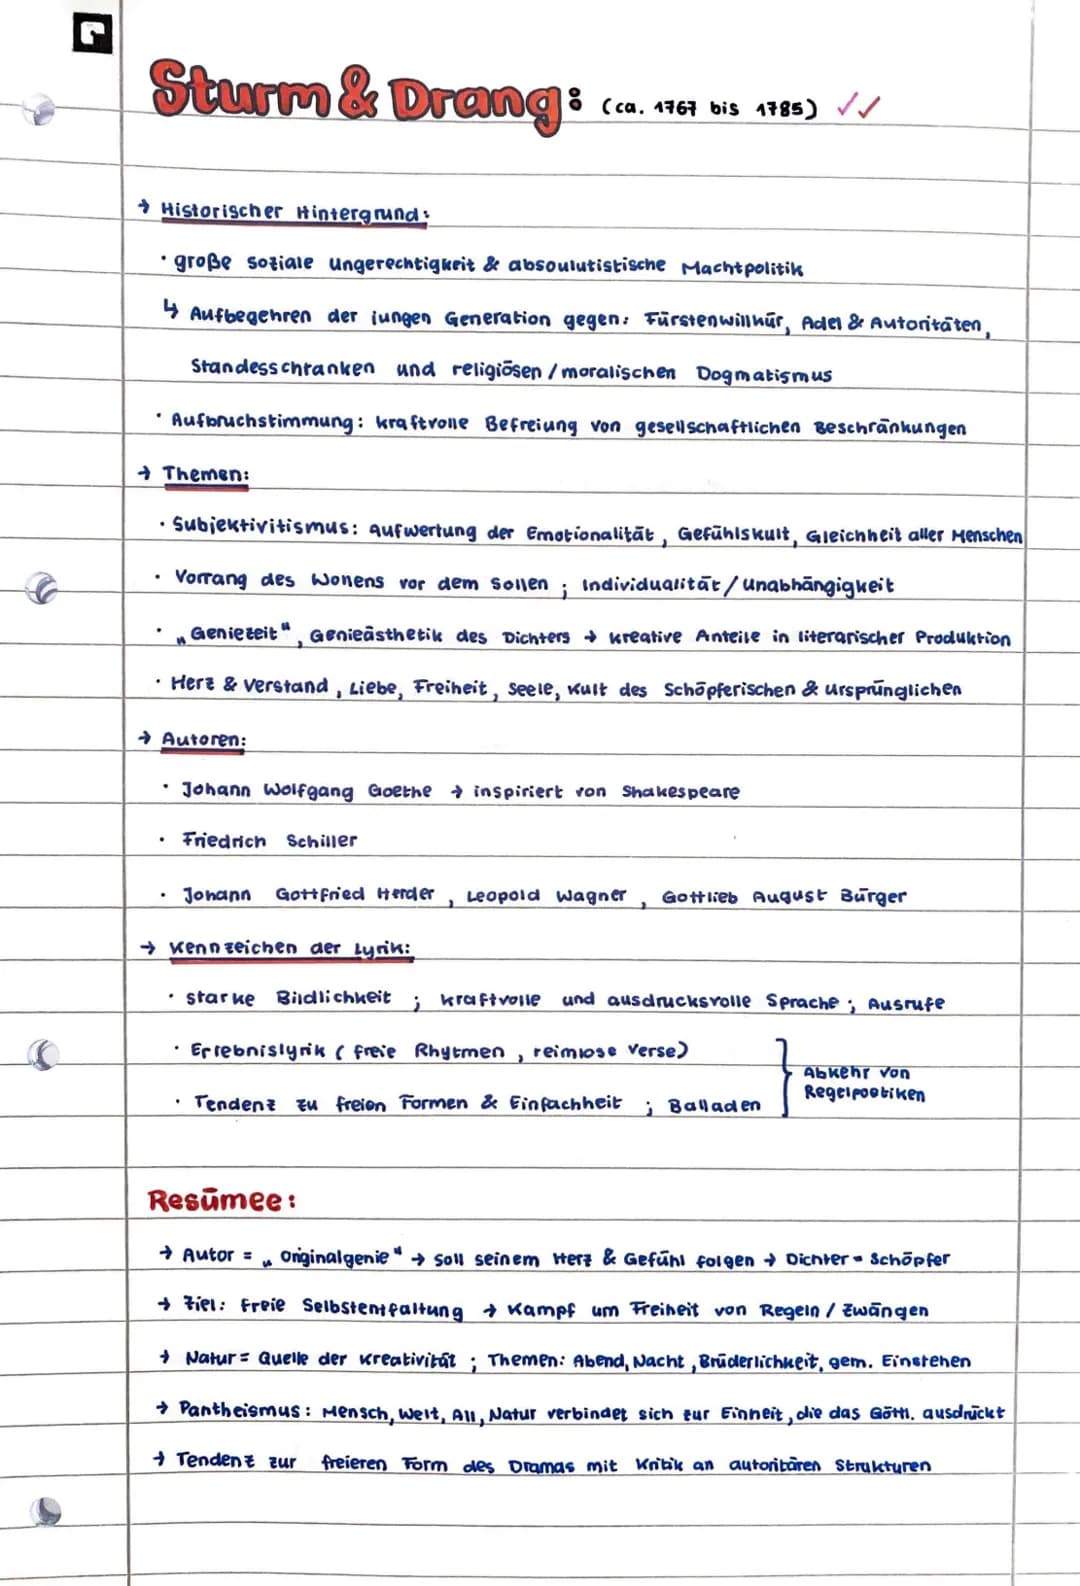 Sturm & Drang: (ca. 1767 bis 1785) ✓✓
→ Historischer Hintergrund:
· große soziale Ungerechtigkeit & absoulutistische Machtpolitik
↳ Aufbegehren der jungen Generation gegen: Fürstenwillkür, Adel & Autoritäten,
Standesschranken und religiösen / moralischen Dogmatismus
· Aufbruchstimmung: kraftvolle Befreiung von gesellschaftlichen Beschränkungen
→ Themen:
· Subjektivitismus: Aufwertung der Emotionalität, Gefühlskult, Gleichheit aller Menschen
· Vorrang des Wollens vor dem Sollen ; Individualität / Unabhängigkeit
· „Geniezeit“, Genieästhetik des Dichters → kreative Anteile in literarischer Produktion
· Herz & Verstand, Liebe, Freiheit, Seele, Kult des Schöpferischen & Ursprünglichen
→ Autoren:
· Johann Wolfgang Goethe → inspiriert von Shakespeare
· Friedrich Schiller
· Johann Gottfried Herder, Leopold Wagner, Gottlieb August Bürger
→ Kennzeichen der Lyrik:
· starke Bildlichkeit ; kraftvolle und ausdrucksvolle Sprache ; Ausrufe
· Erlebnislyrik (freie Rhytmen, reimlose Verse)
Abkehr von
Regelpoetiken
· Tendenz zu freien Formen & Einfachheit ; Balladen
Resümee:
→ Autor = „Originalgenie“ → soll seinem Herz & Gefühl folgen → Dichter = Schöpfer
→ Ziel: Freie Selbstentfaltung → Kampf um Freiheit von Regeln / Zwängen
→ Natur = Quelle der Kreativität ; Themen: Abend, Nacht, Brüderlichkeit, gem. Einstehen
→ Pantheismus: Mensch, Welt, All, Natur verbindet sich zur Einheit, die das Göttl. ausdrückt
→ Tendenz zur freieren Form des Dramas mit Kritik an autoritären Strukturen